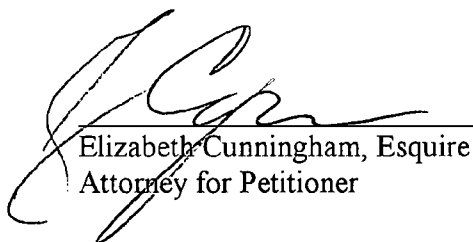 Elizabeth Cunningham, Esquire
Attorney for Petitioner